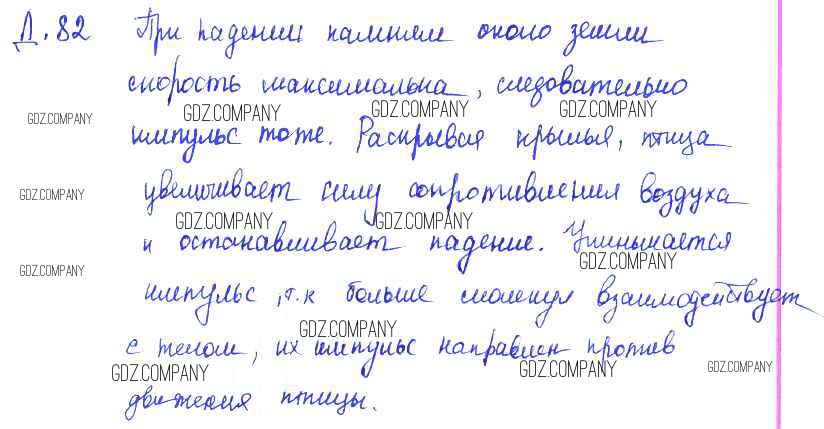 Д.82 При падении камнем около земли
скорость максимальна, следовательно
GDZ.COMPANY GDZ.COMPANY GDZ.COMPANY GDZ.COMPANY
импульс тоже. Раскрывая крылья, птица
GDZ.COMPANY увеличивает силу сопротивления воздуха
GDZ.COMPANY GDZ.COMPANY
и останавливает падение. Уменьшается
GDZ.COMPANY GDZ.COMPANY
импульс, т.к больше молекул взаимодействует
GDZ.COMPANY
с телом, их импульс направлен против
GDZ.COMPANY GDZ.COMPANY GDZ.COMPANY
движения птицы.